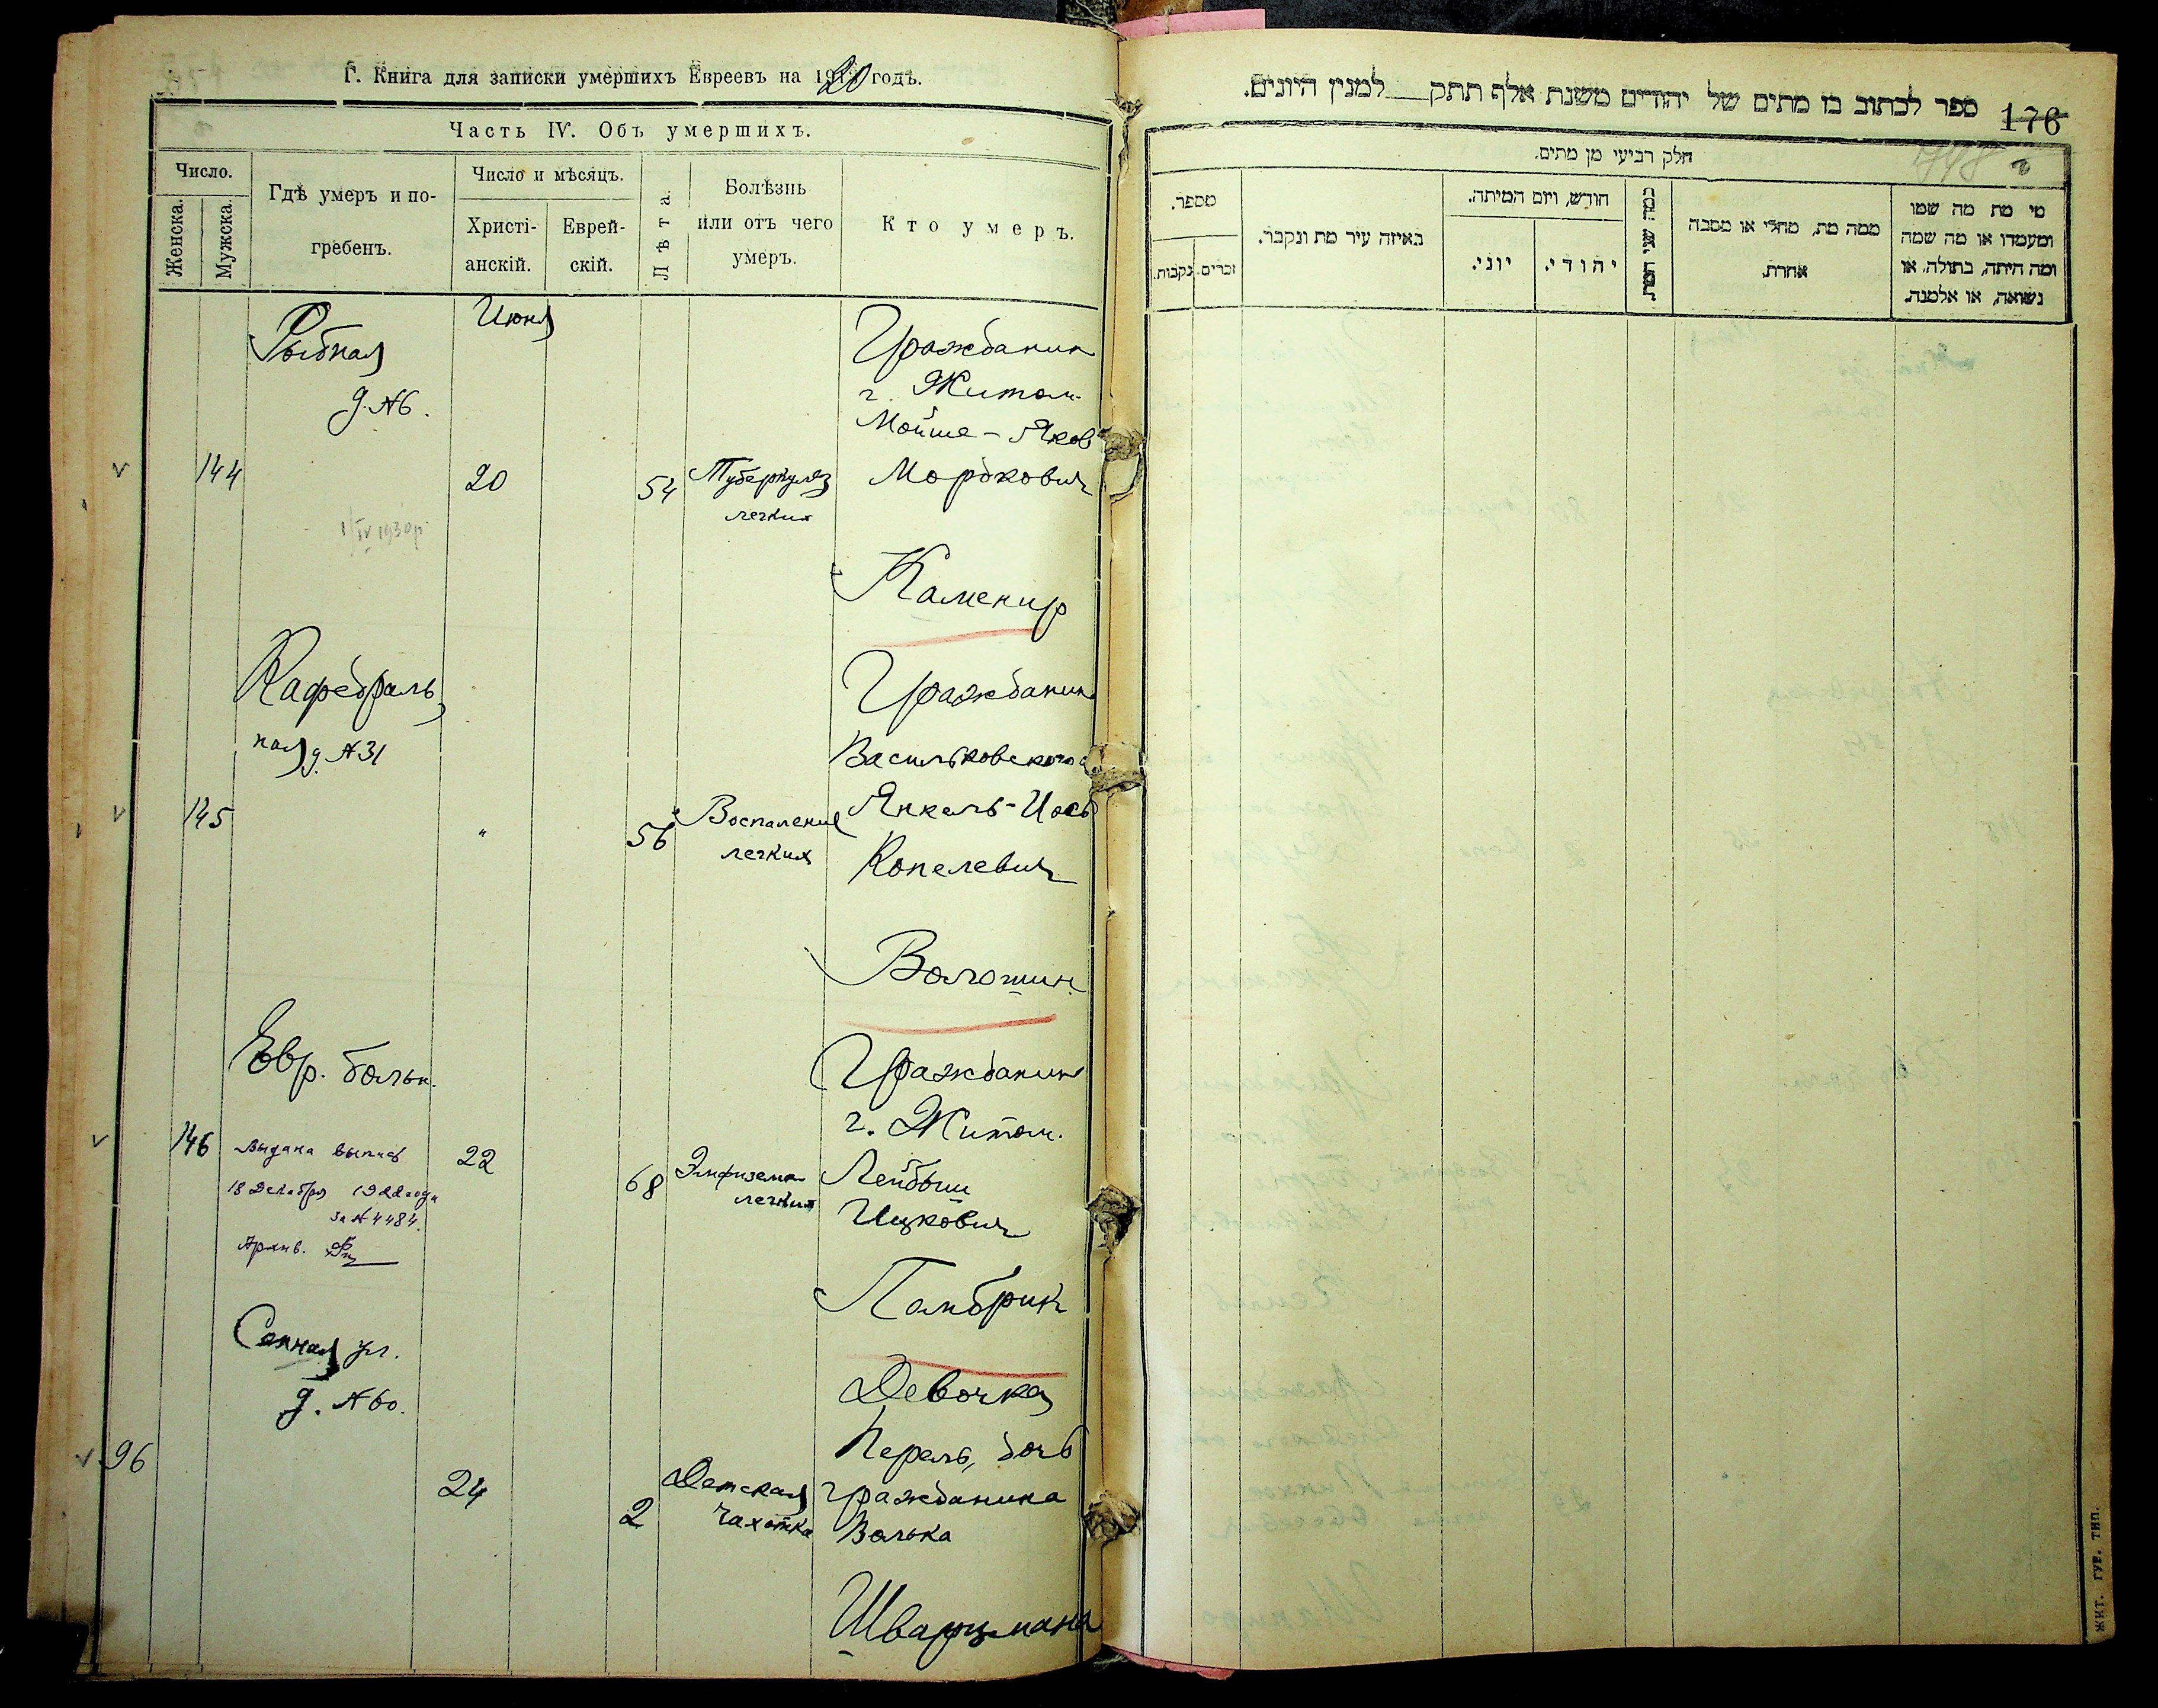 Г. Книга для записки умершихъ Евреевъ на 1920 годъ.
Часть IV. Объ умершихъ.
Число.
Женска.
Мужска.
Гдѣ умеръ и по-
гребенъ.
Число и мѣсяцъ.
Христі-
анскій.
Еврей-
скій.
Лѣта.
Болѣзнь
или отъ чего
умеръ.
Кто умеръ.
Июня
Рыбная
д. №6.
144
20
54
Туберкулез
легких
Гражданин
г. Житом.
Мойше-Яков
Мордкович
Каменир
1/IV 1930р.
Кафедраль
ная д. №31
145
"
56
Воспаление
легких
Гражданин
Васильковского
Янкель-Иось
Копелевич
Волошин
Евр. больн.
146
Выдана выпись
18 Декабря 1922 года
за №4484.
Архив.
22
68
Эмфизема
легких
Гражданин
г. Житом.
Лейбыш
Ицкович
Ламбрик
Сенная ул.
д. №60.
96
24
2
Детская
чахотка
Девочка
Перель, дочь
гражданина
Волька
Шварцмана
ספר לכתוב בו מתים של יהודים משנת אלף תתק למנין היונים.
176
חלק רביעי מן מתים.
מספר.
נקבות.
זכרים.
באיזה עיר מת ונקבר.
חודש, ויום המיתה.
יוני.
יהודי.
כמה שני המת
ממה מת, מחלי או מסבה
אחרת.
מי מת מה שמו
ומעמדו או מה שמה
ומה היתה, בתולה, או
נשואה, או אלמנה.
ЖИТ. ГУБ. ТИП.